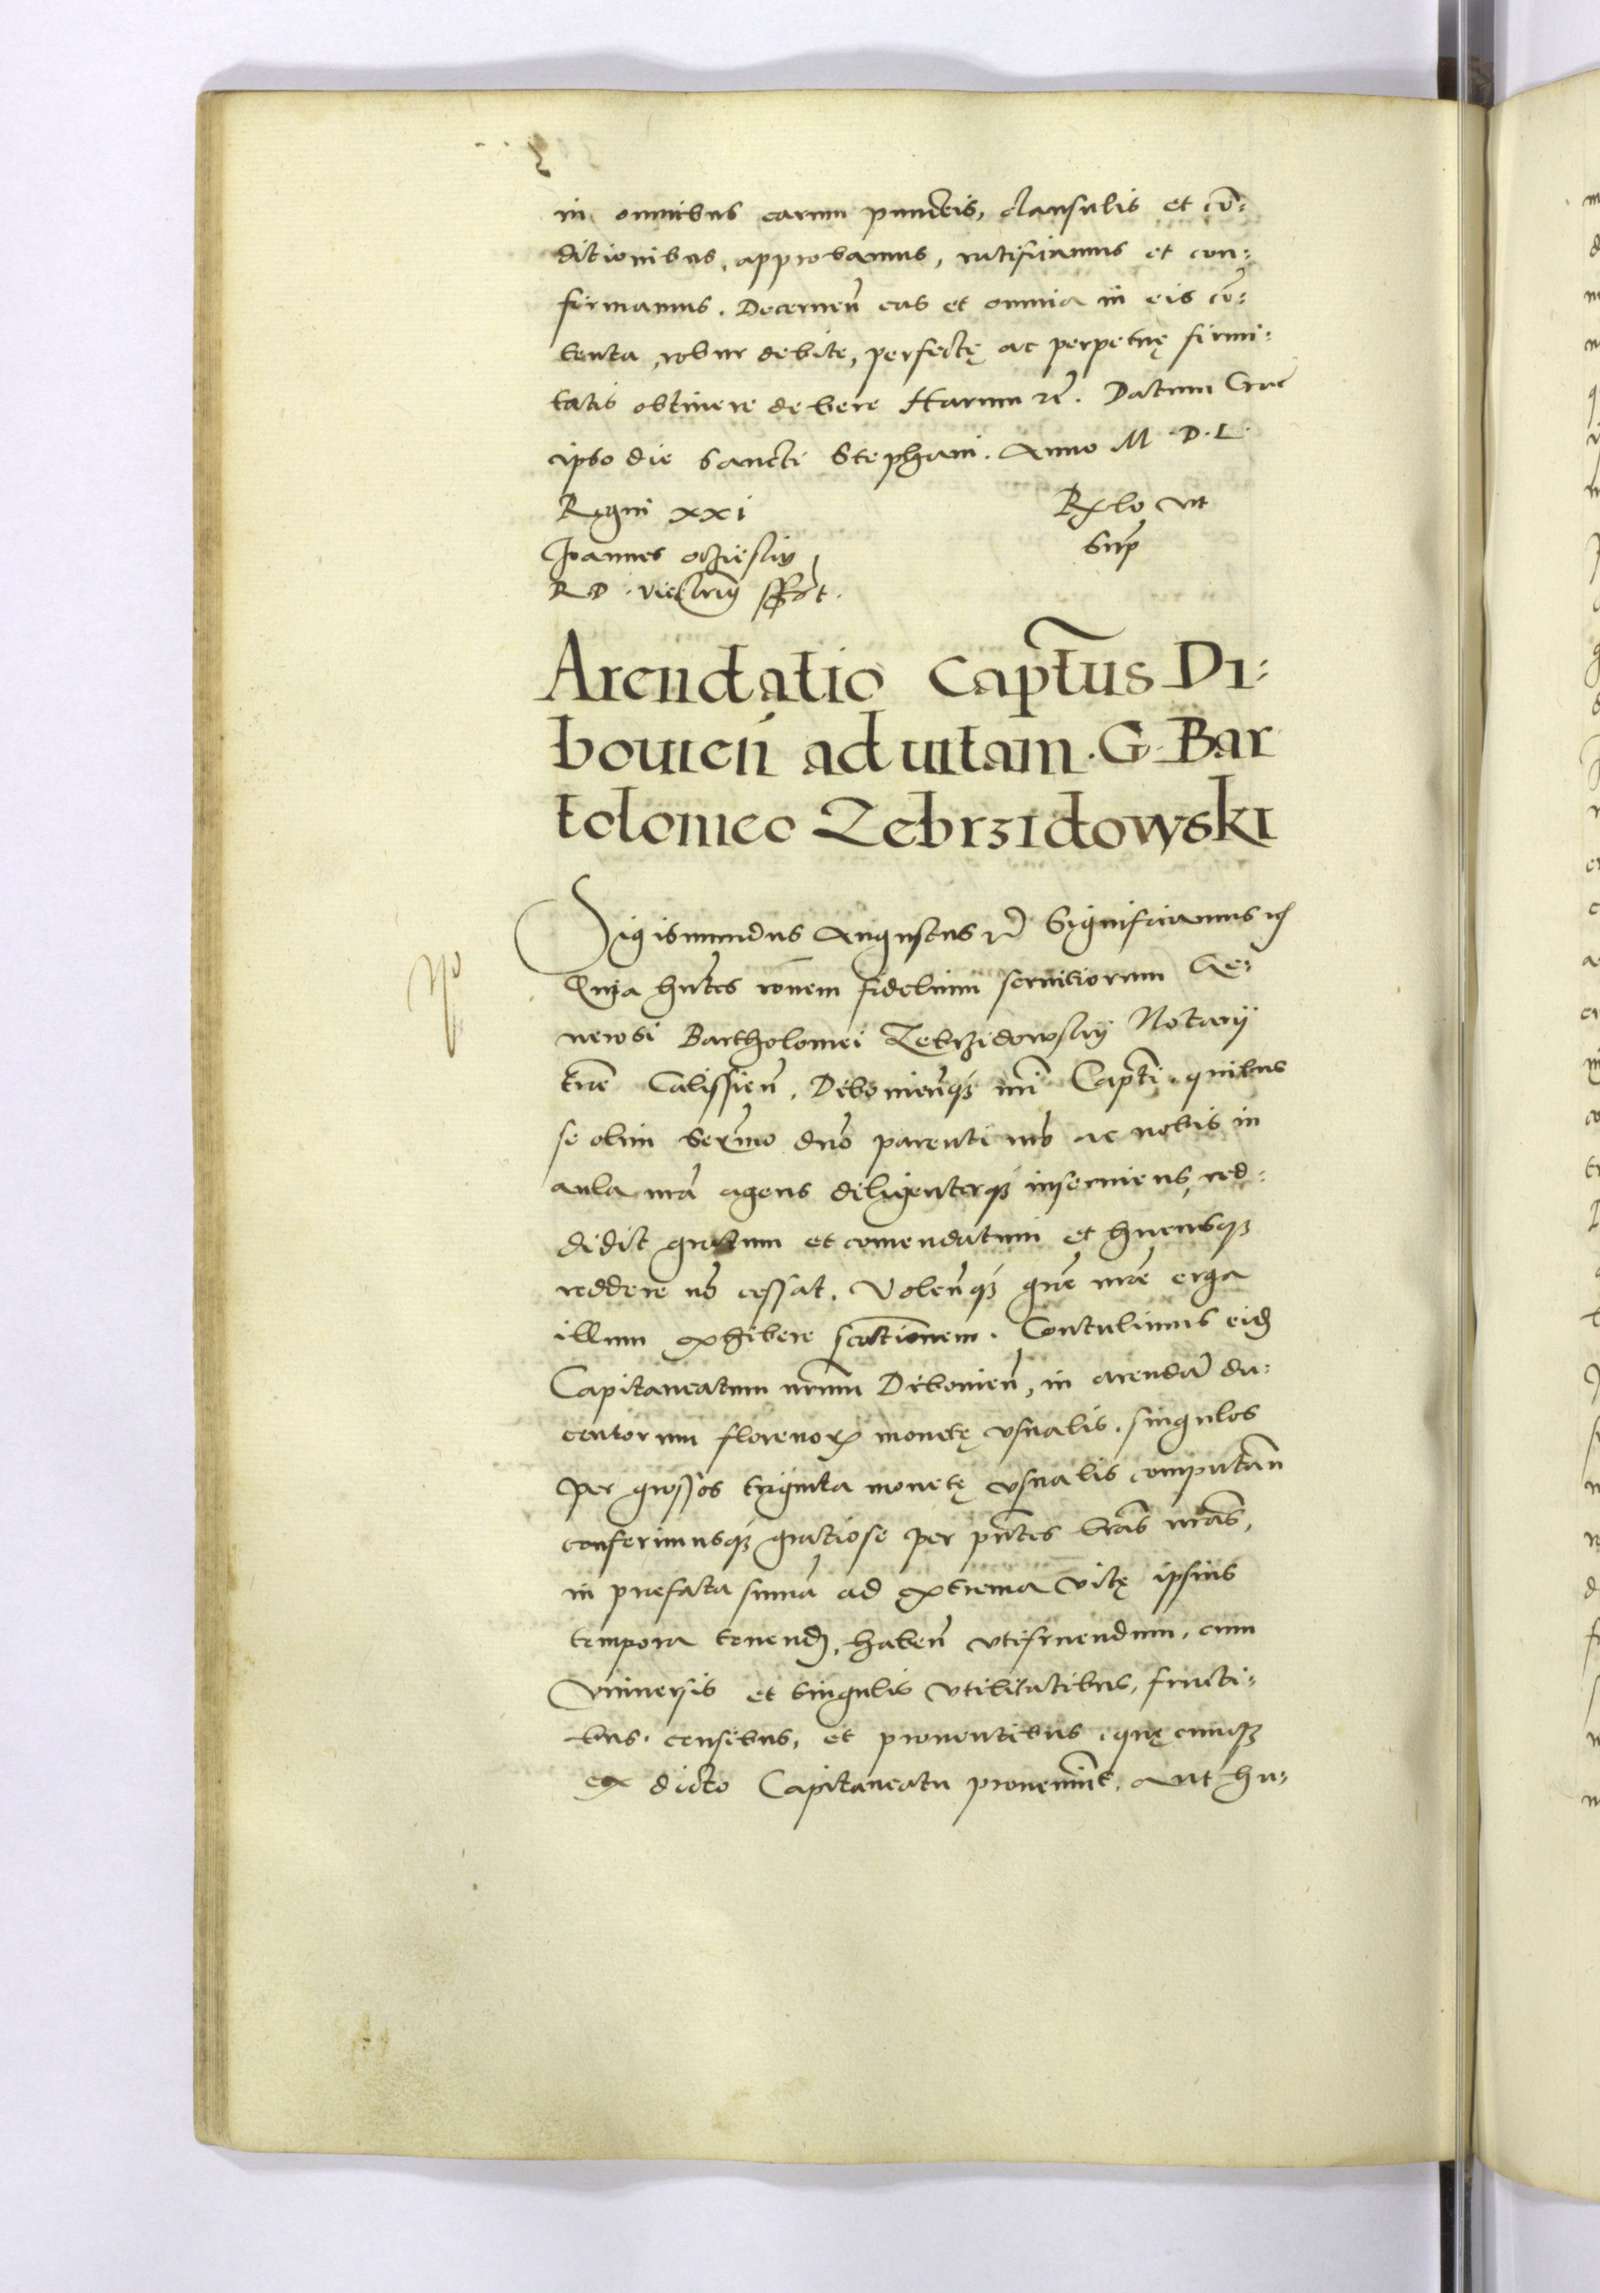 in omnibus earum punctis, clausulis et cō:
ditionibus, approbamus, ratificamus et con:
firmamus. Decernen̄ eas et omnia in eis cō:
tenta, robur debite, perfectę ac perpetuę firmi:
tatis obtinere debere Harum rē. Datum Crac
ipso die Sancti Stephani. Anno M.D.L.
Regni xxi
Rlo ut
Sup̄
Joannes oczieskÿ
R P. vicecancellarius sspt.
Arendatio Captus̄ Di:
bouien̄ ad uitam. G. Bar
tolomeo Zebrzidowski
Sigismundus Augustus rē Significamus rē
No
Quia hn̄tes rōnem fidelium seruitiorum Ge:
nerosi Bartholomei Zebrzidowskÿ Notarÿ
trē Calissien̄. Dibouien̄q̧ nrī Captī. quibus
se olim Serm̄o dnō parenti nrō ac nobis in
aula nrā agens diligenterq̧ inseruiens, red:
didit gratum et comendatum et hucusq̧
reddere nō cessat. Volen̄q̧ grē nrē erga
illum exhibere sc̄ationem. Contulimus eid̄
Capitaneatum nrum̄ Dibouien̄, in arendā du:
centorum florenoꝝ monetę usualis. singulos
per grossos triginta monetę usualis computan̄
conferimusq̧ gratiose per pn̄tes lrās nrās,
in prefata sumā ad extrema vitę ipsius
tempora tenend̄, haben̄ utifruendum, cum
Vniuersis et singulis utilitatibus, fructi:
bus, censibus, et prouentibus quęcunq̧
ex dicto Capitaneatu proueniūt, aut hu: